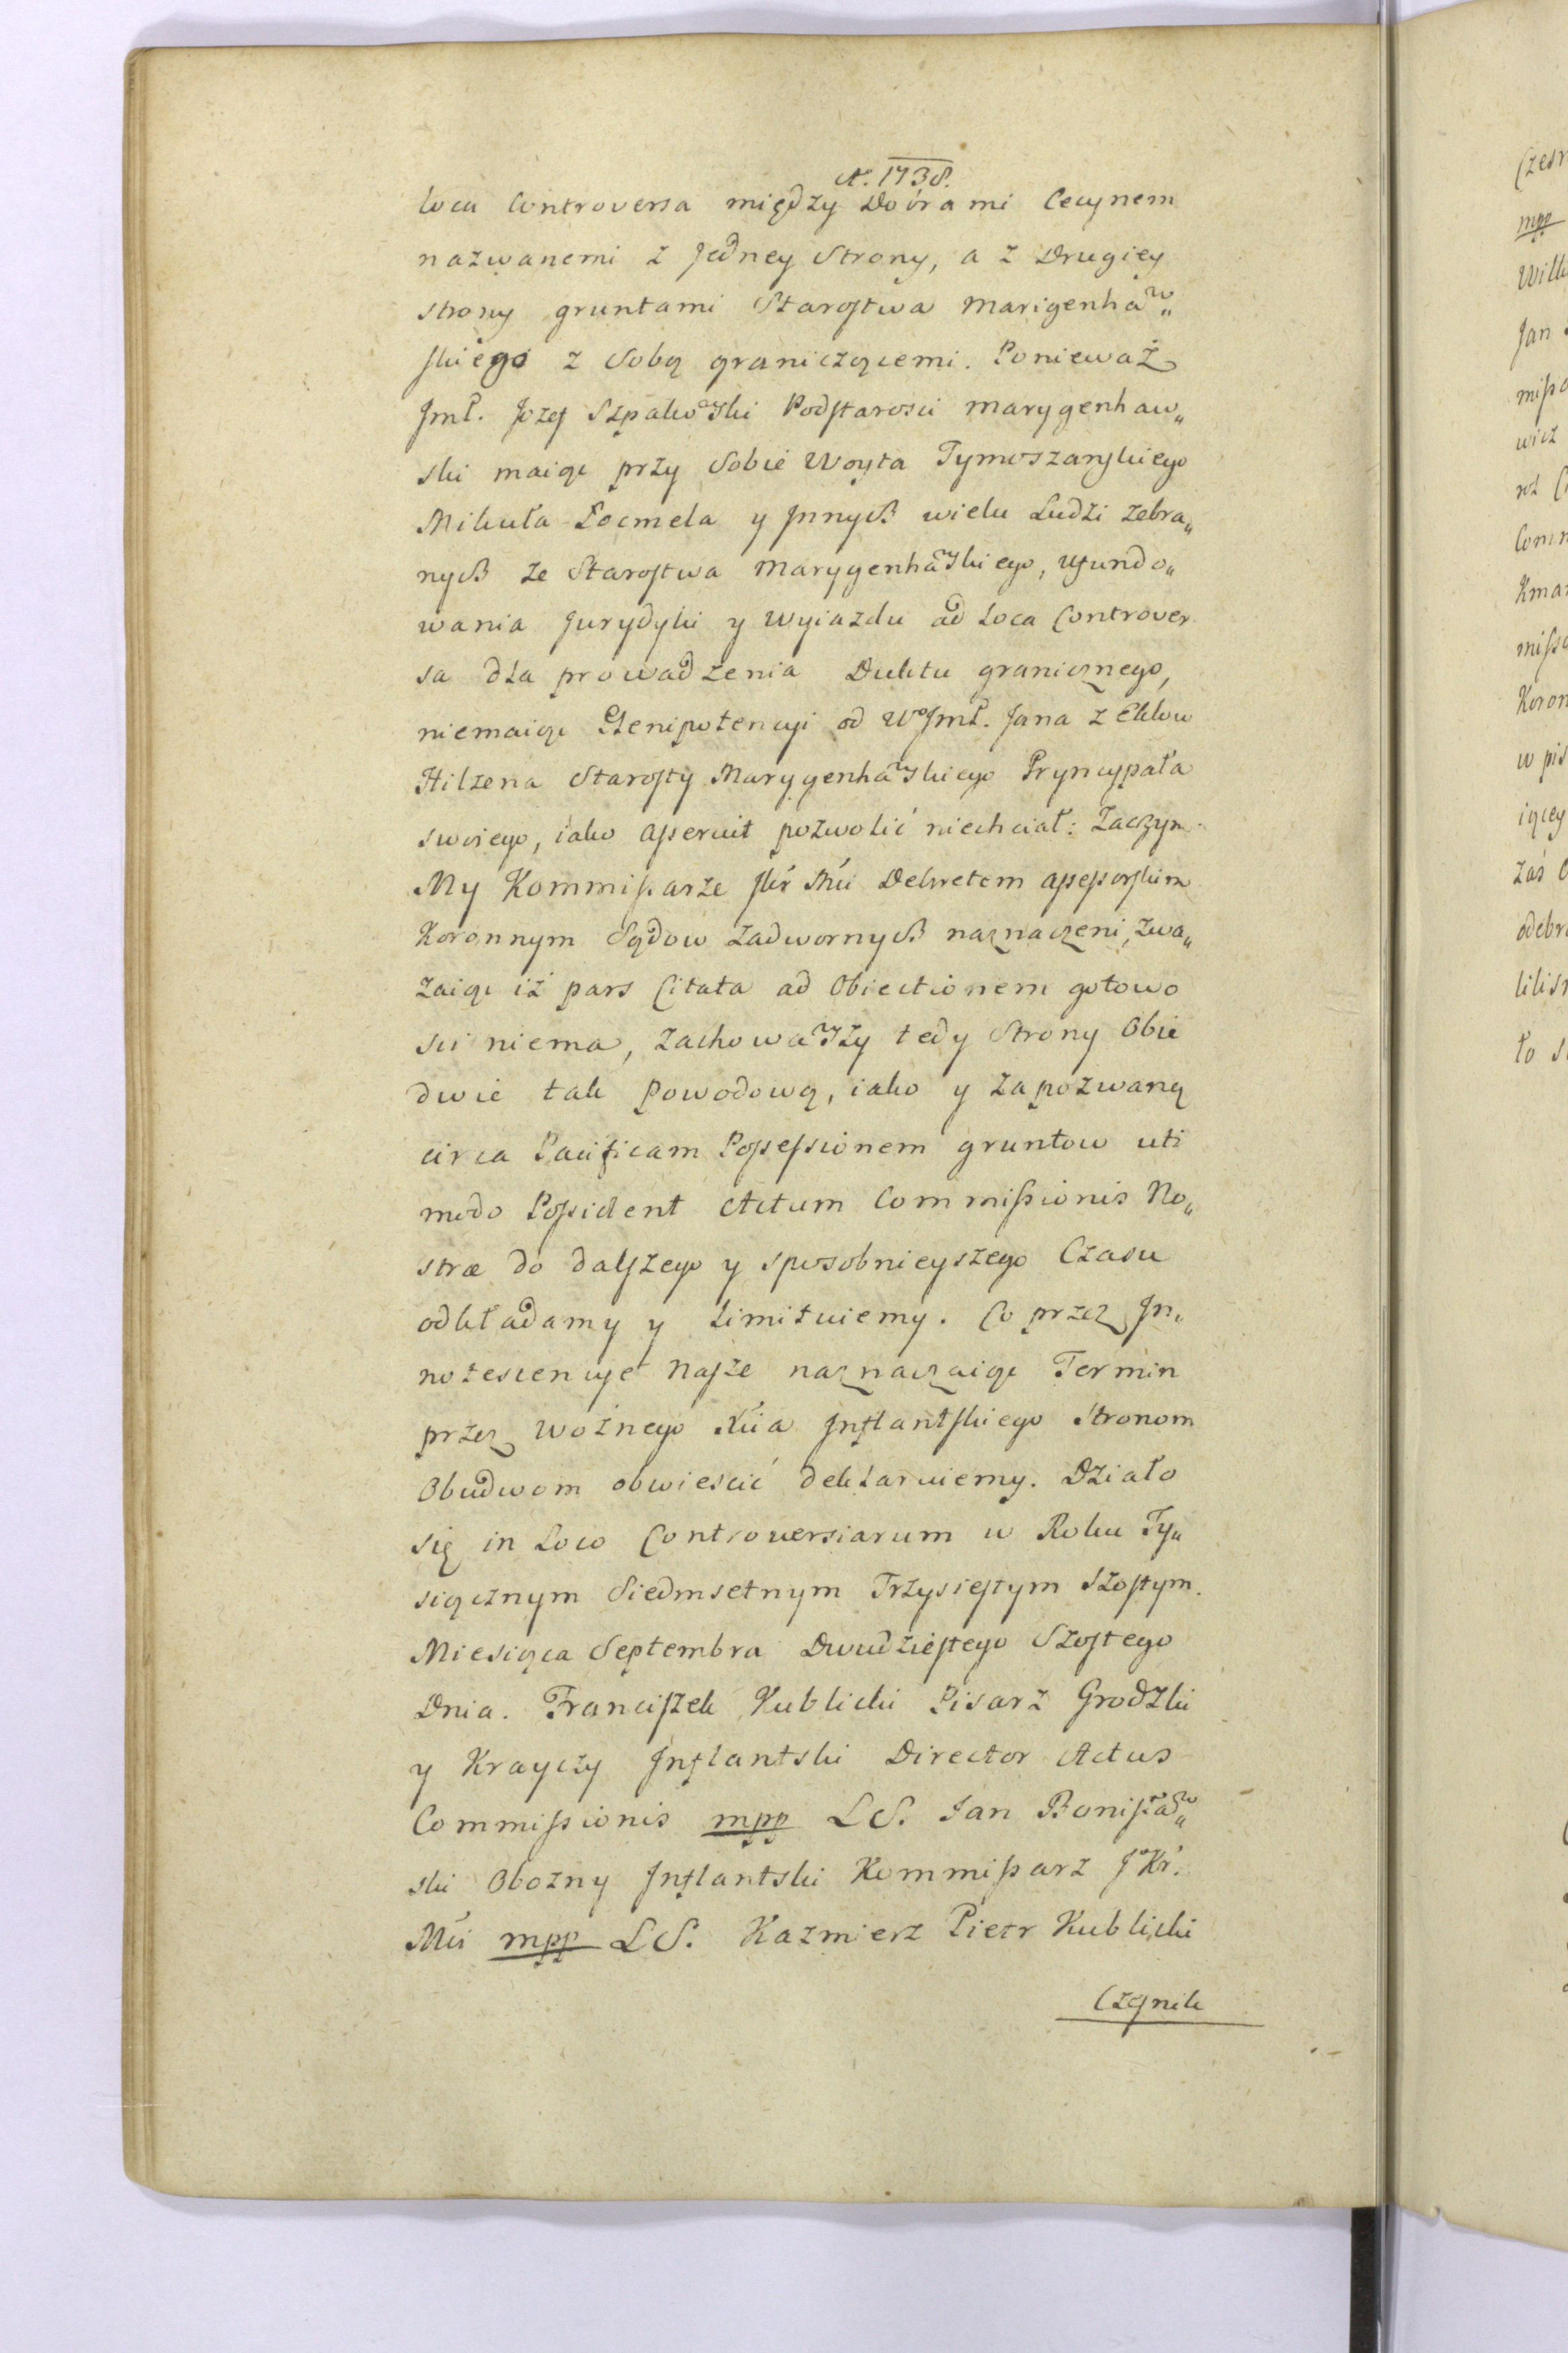 A. 1738.
loca Controversa między Dobrami Cecynem
nazwanemi z Jedney Strony, a z Drugiey
strony gruntami Starostwa Marigenhaw„
skiego z Sobą graniczącemi. Ponieważ
Jmć. Jozef Szpakowski Podstarosci marygenhaw„
ski maiąc przy Sobie Woyta Tymoszanskiego
Mikuła Locmela y Jnnych wielu Ludzi zebra„
nych ze Starostwa Marygenhawskiego, ufundo„
wania Jurydyki y wyiazdu ad Loca Controver
sa dla prowadzenia Duktu granicznego,
niemaiąc Plenipotencyi od WoJmć. Jana z Eklow
Hilzena Starosty Marygenhawskiego Pryncypała
swoiego, iako asseruit pozwolić niechciał: Zaczym
My Kommissarze JKr Mci Dekretem assessorskim
Koronnym Sądow Zadwornych naznaczeni, zwa„
zaiąc iż pars Citata ad Obiectionem gotowo
sci niema, zachowawszy tedy Strony Obie
dwie tak Powodową, iako y Zapozwaną
circa Pacificam Possessionem gruntow uti
modo Possident Actum Commissionis No„
stræ do dalszego y sposobnieyszego Czasu
odkładamy y Limituiemy. Co przez Jn„
notescencye Nasze naznaczaiąc Termin
przez Woźnego Xtwa Jnflantskiego Stronom
Obudwom obwiescić deklaruiemy. Działo
się in Loco Controversiarum w Roku Ty„
siącznym Siedmsetnym Trzysiestym Szostym.
Miesiąca Septembra Dwudziestego Szostego
Dnia. Franciszek Kublicki Pisarz Grodzki
y Krayczy Jnflantski Director Actus
Commissionis mpp LS. Jan Bonisław„
ski Obozny Jnflantski Kommissarz JKr.
Mci mpp LS. Kazmierz Pietr Kublicki
Czesnik
Czesn
mpp
Jan
wicz
w pis
iącey
zaś
odebr